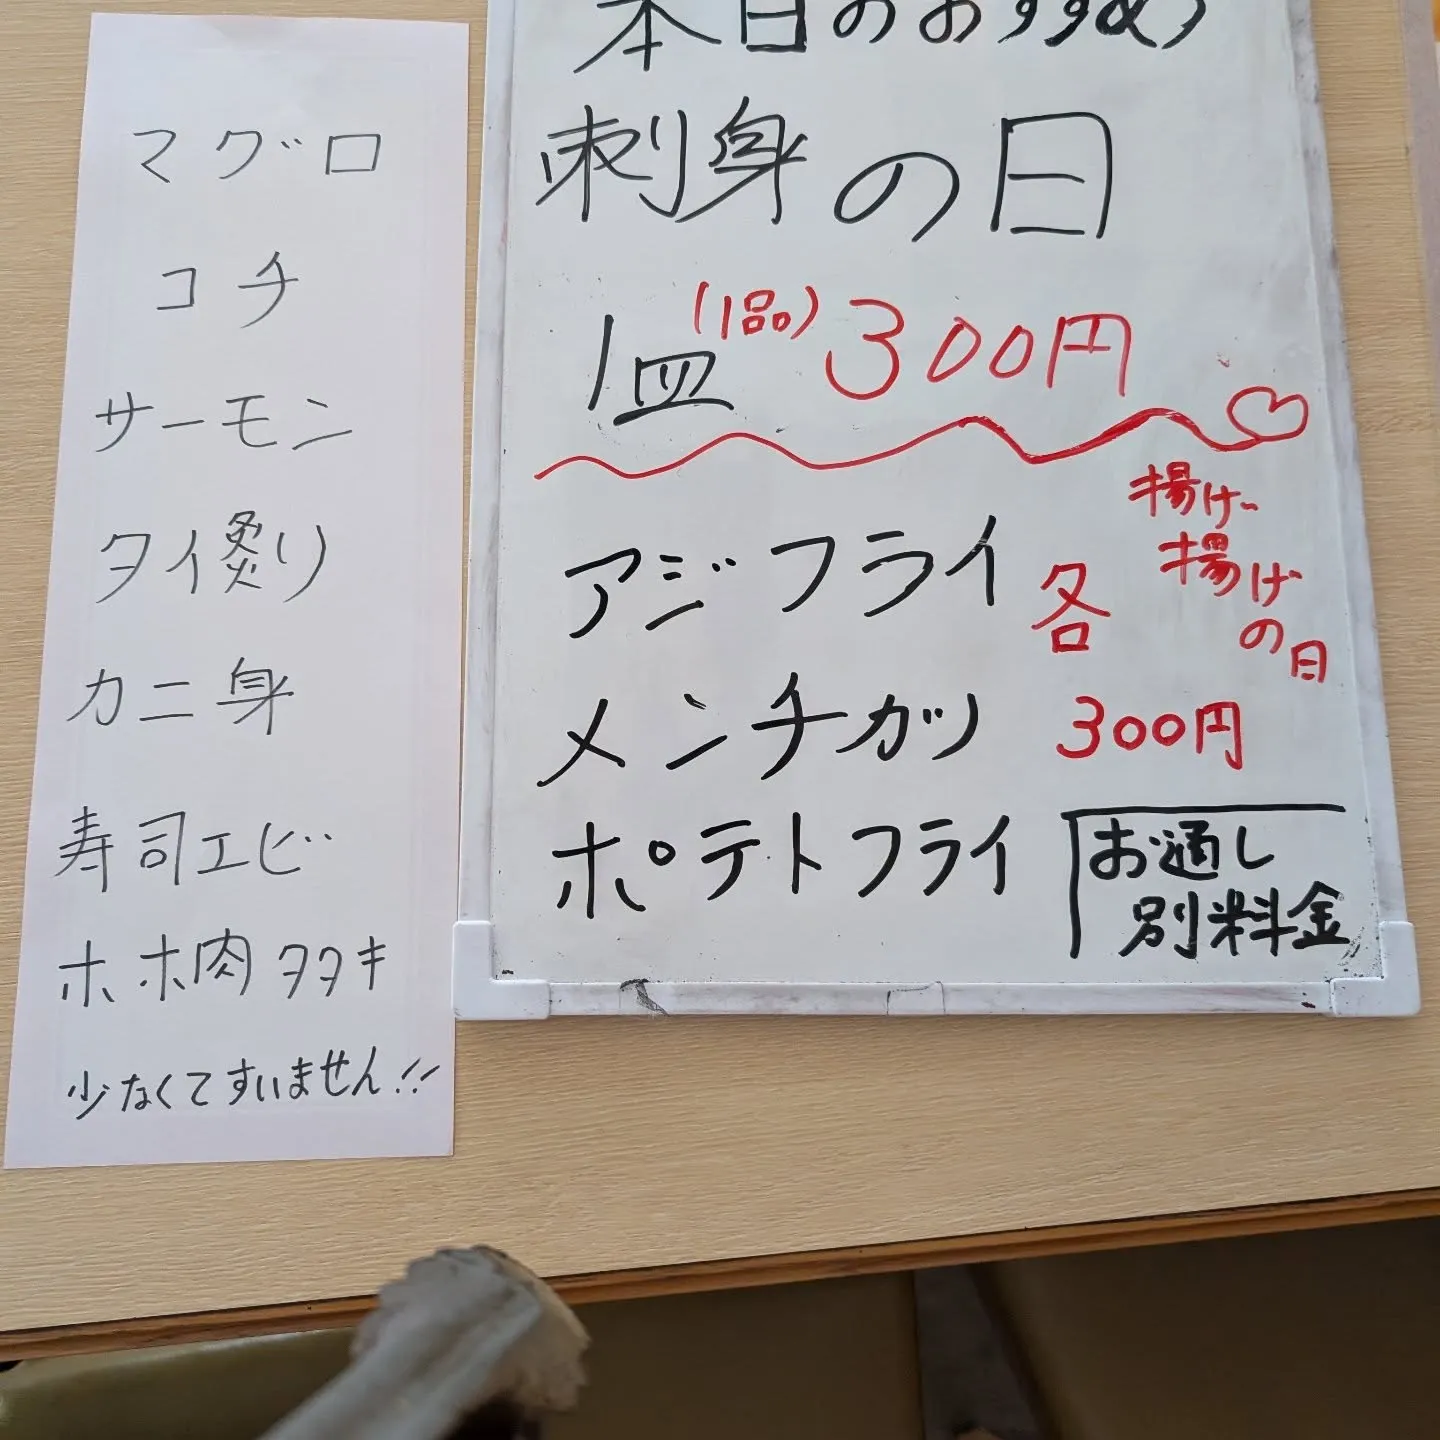 マグロ
コチ
サーモン
タイ炙り
カニ身
寿司エビ
ホホ肉タタキ
少なくてすいません!!
本日のおすすめ
刺身の日
1皿(1品)300円
揚げ~
揚げ
の日
アジフライ
各
メンチカツ
300円
ポテトフライ
お通し
別料金